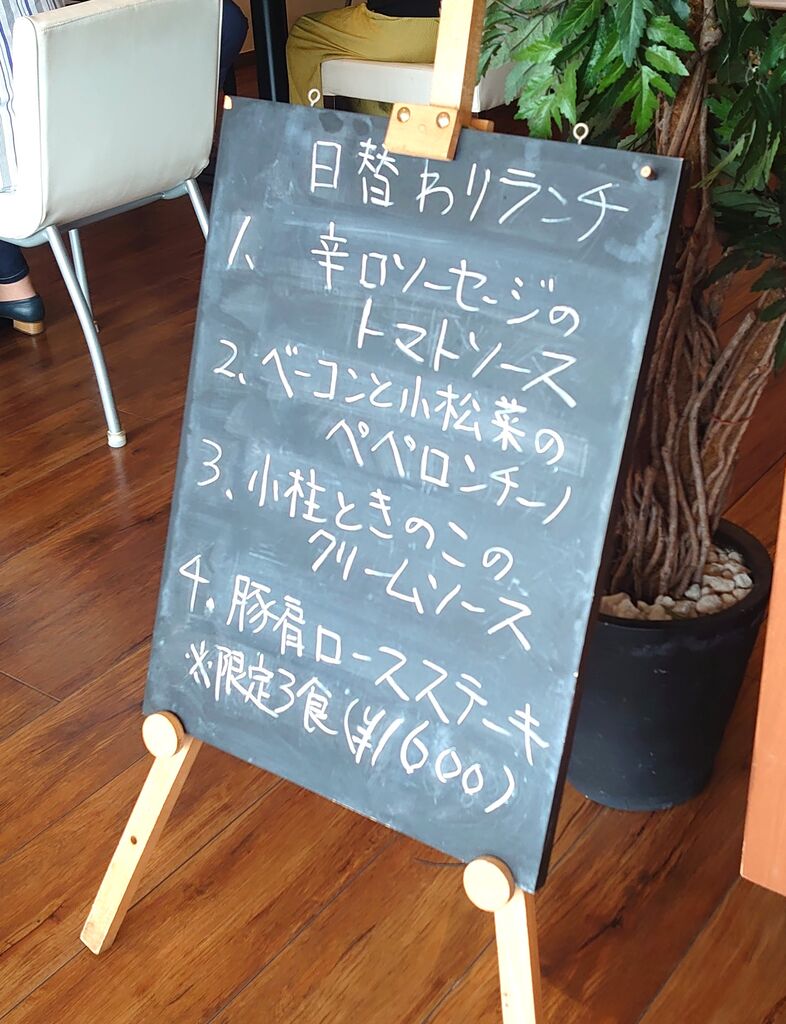 日替わりランチ
1、 辛口ソーセージの
トマトソース
2、ベーコンと小松菜の
ペペロンチーノ
3、小柱ときのこの
クリームソース
4、豚肩ロースステーキ
※限定3食(¥1600)